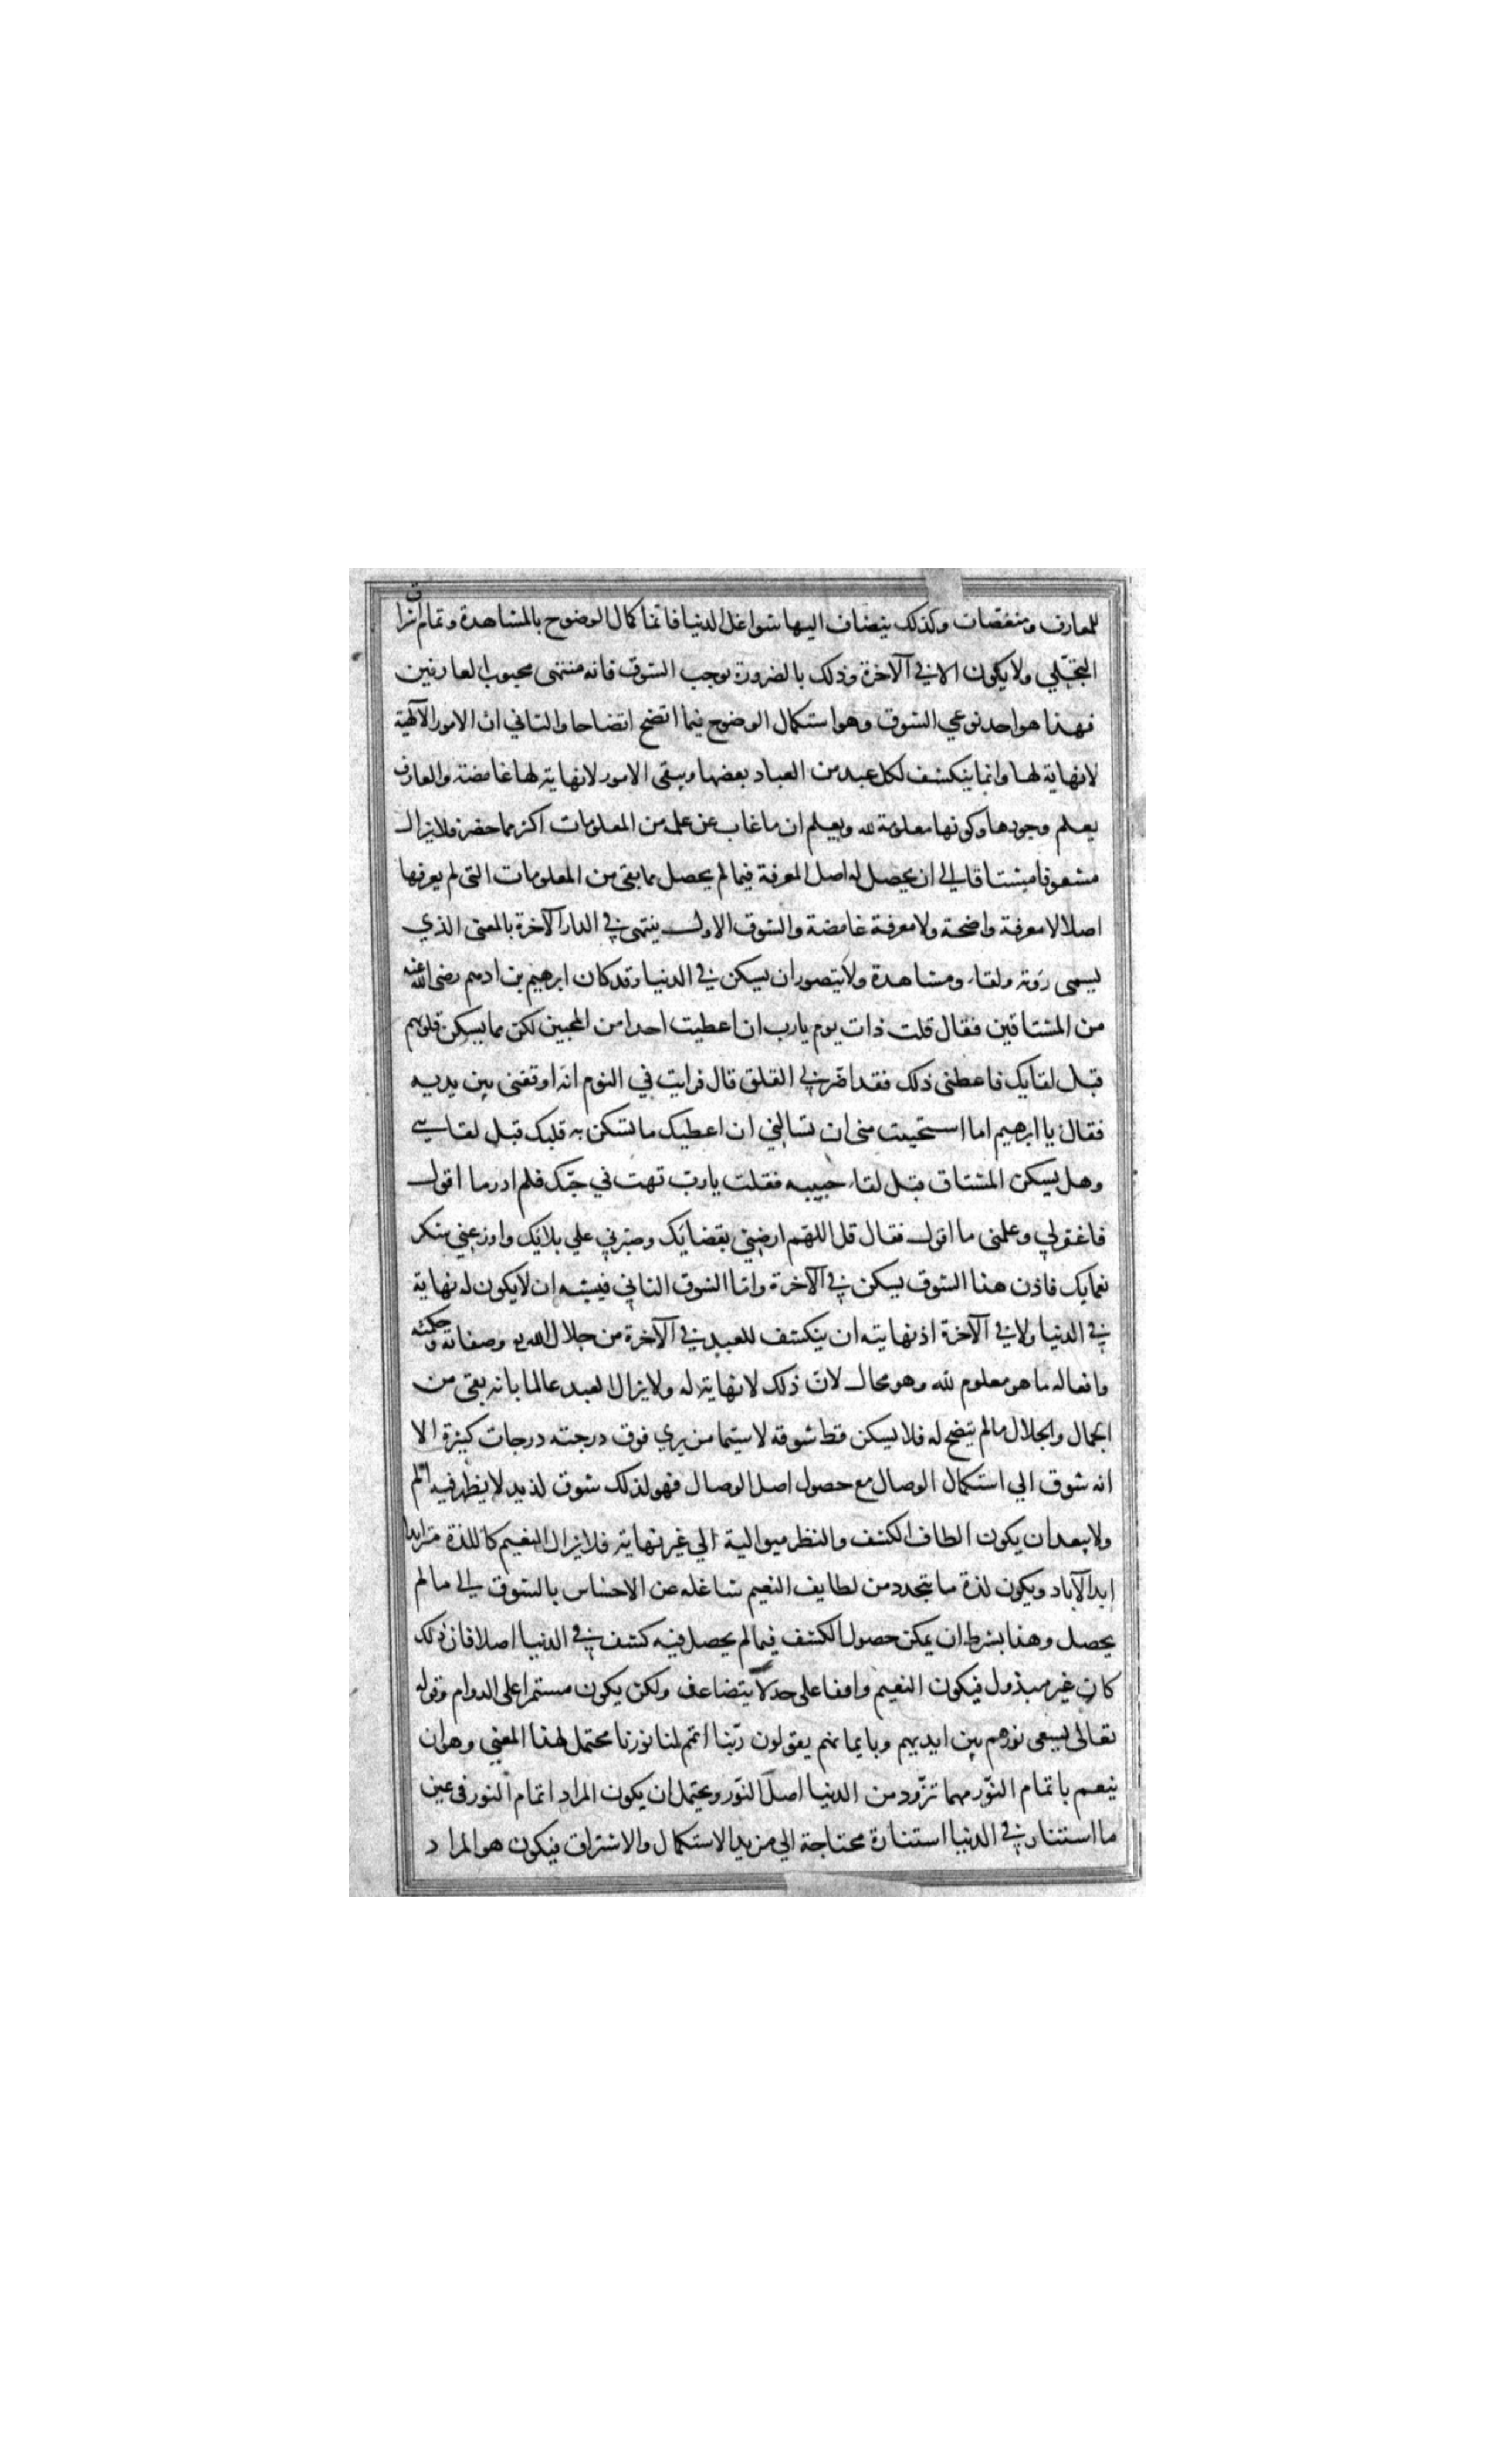 للمعارف ومنغصات وكذلك ينضاف اليها شواغل الدنيا فانما كمال الوضوح بالمشاهدة وتمام اشراق
التجلي ولا يكون الا في الآخرة وذلك بالضرورة يوجب الشوق فانه منتهى محبوب العارفين
فهذا هو احد نوعي الشوق وهو استكمال الوضوح فيما اتضح اتضاحا والثاني ان الامور الآلهية
لا نهاية لها وانما ينكشف لكل عبد من العباد بعضها ويبقى الامور لا نهاية لها غامضة والعارف
يعلم وجودها وكونها معلومة لله ويعلم ان ما غاب عن علمه من المعلومات اكثر مما حضر فلا يزال
مشعوفا مشتاقا الى ان يحصل له اصل المعرفة فيما لم يحصل مما بقي من المعلومات التي لم يعرفها
اصلا لا معرفة واضحة ولا معرفة غامضة والشوق الاول ينتهى في الدار الآخرة بالمعنى الذي
يسمى رؤية ولقاء ومشاهدة ولا يتصور ان يسكن في الدنيا وقد كان ابرهيم بن ادهم رضى الله عنه
من المشتاقين فقال قلت ذات يوم يارب ان اعطيت احدا من المحبين لك مما يسكن قلوبهم
قبل لقايك فاعطنى ذلك فقد اضر بي القلق قال فرايت في النوم انه اوقفنى بين يديه
فقال يا ابرهيم اما استحييت منى ان تسالني ان اعطيك ما تسكن به قلبك قبل لقايي
وهل يسكن المشتاق قبل لقاء حبيبه فقلت يا رب تهت في حبك فلم ادر ما اقول
فاغفر لي وعلمنى ما اقول فقال قل اللهم ارضني بقضايك وصبرني علي بلائك واوزعني شكر
نعمايك فاذن هذا الشوق يسكن في الآخرة واما الشوق الثاني فيشبه ان لا يكون له نهاية
في الدنيا ولا في الآخرة اذ نهايته ان ينكشف للعبد في الآخرة من جلال الله وصفاته وحكمته
وافعاله ما هو معلوم لله وهو محال لان ذلك لا نهاية له ولا يزال العبد عالما بانه بقي من
الجمال والجلال ما لم يتضح له فلا يسكن قط شوقه لا سيما من يرى فوق درجته درجات كثيرة الا
انه شوق الي استكمال الوصال مع حصول اصل الوصال فهو لذلك شوق لذيد لا يظهر فيه الم
ولا يبعد ان يكون الطاف الكشف والنظر متوالية الي غير نهاية فلا يزال النعيم كاللذة متزايدا
ابد الآباد ويكون لذة ما يتجدد من لطايف النعيم شاغله عن الاحساس بالشوق الى ما لم
يحصل وهذا بشرط ان يمكن حصول الكشف فيما لم يحصل فيه كشف في الدنيا اصلا فان ذلك
كان غير مبذول فيكون النعيم واقفا على حد لا يتضاعف ولكن يكون مستمرا على الدوام وقوله
تعالى يسعى نورهم بين ايديهم وبايمانهم يقولون ربنا اتمم لنا نورنا محتمل لهذا المعنى وهو ان
ينعم باتمام النور مهما تزود من الدنيا اصل النور ويحتمل ان يكون المراد اتمام النور في عين
ما استنار في الدنيا استنارة محتاجة الي مزيد الاستكمال والاشراق فيكون هو المراد